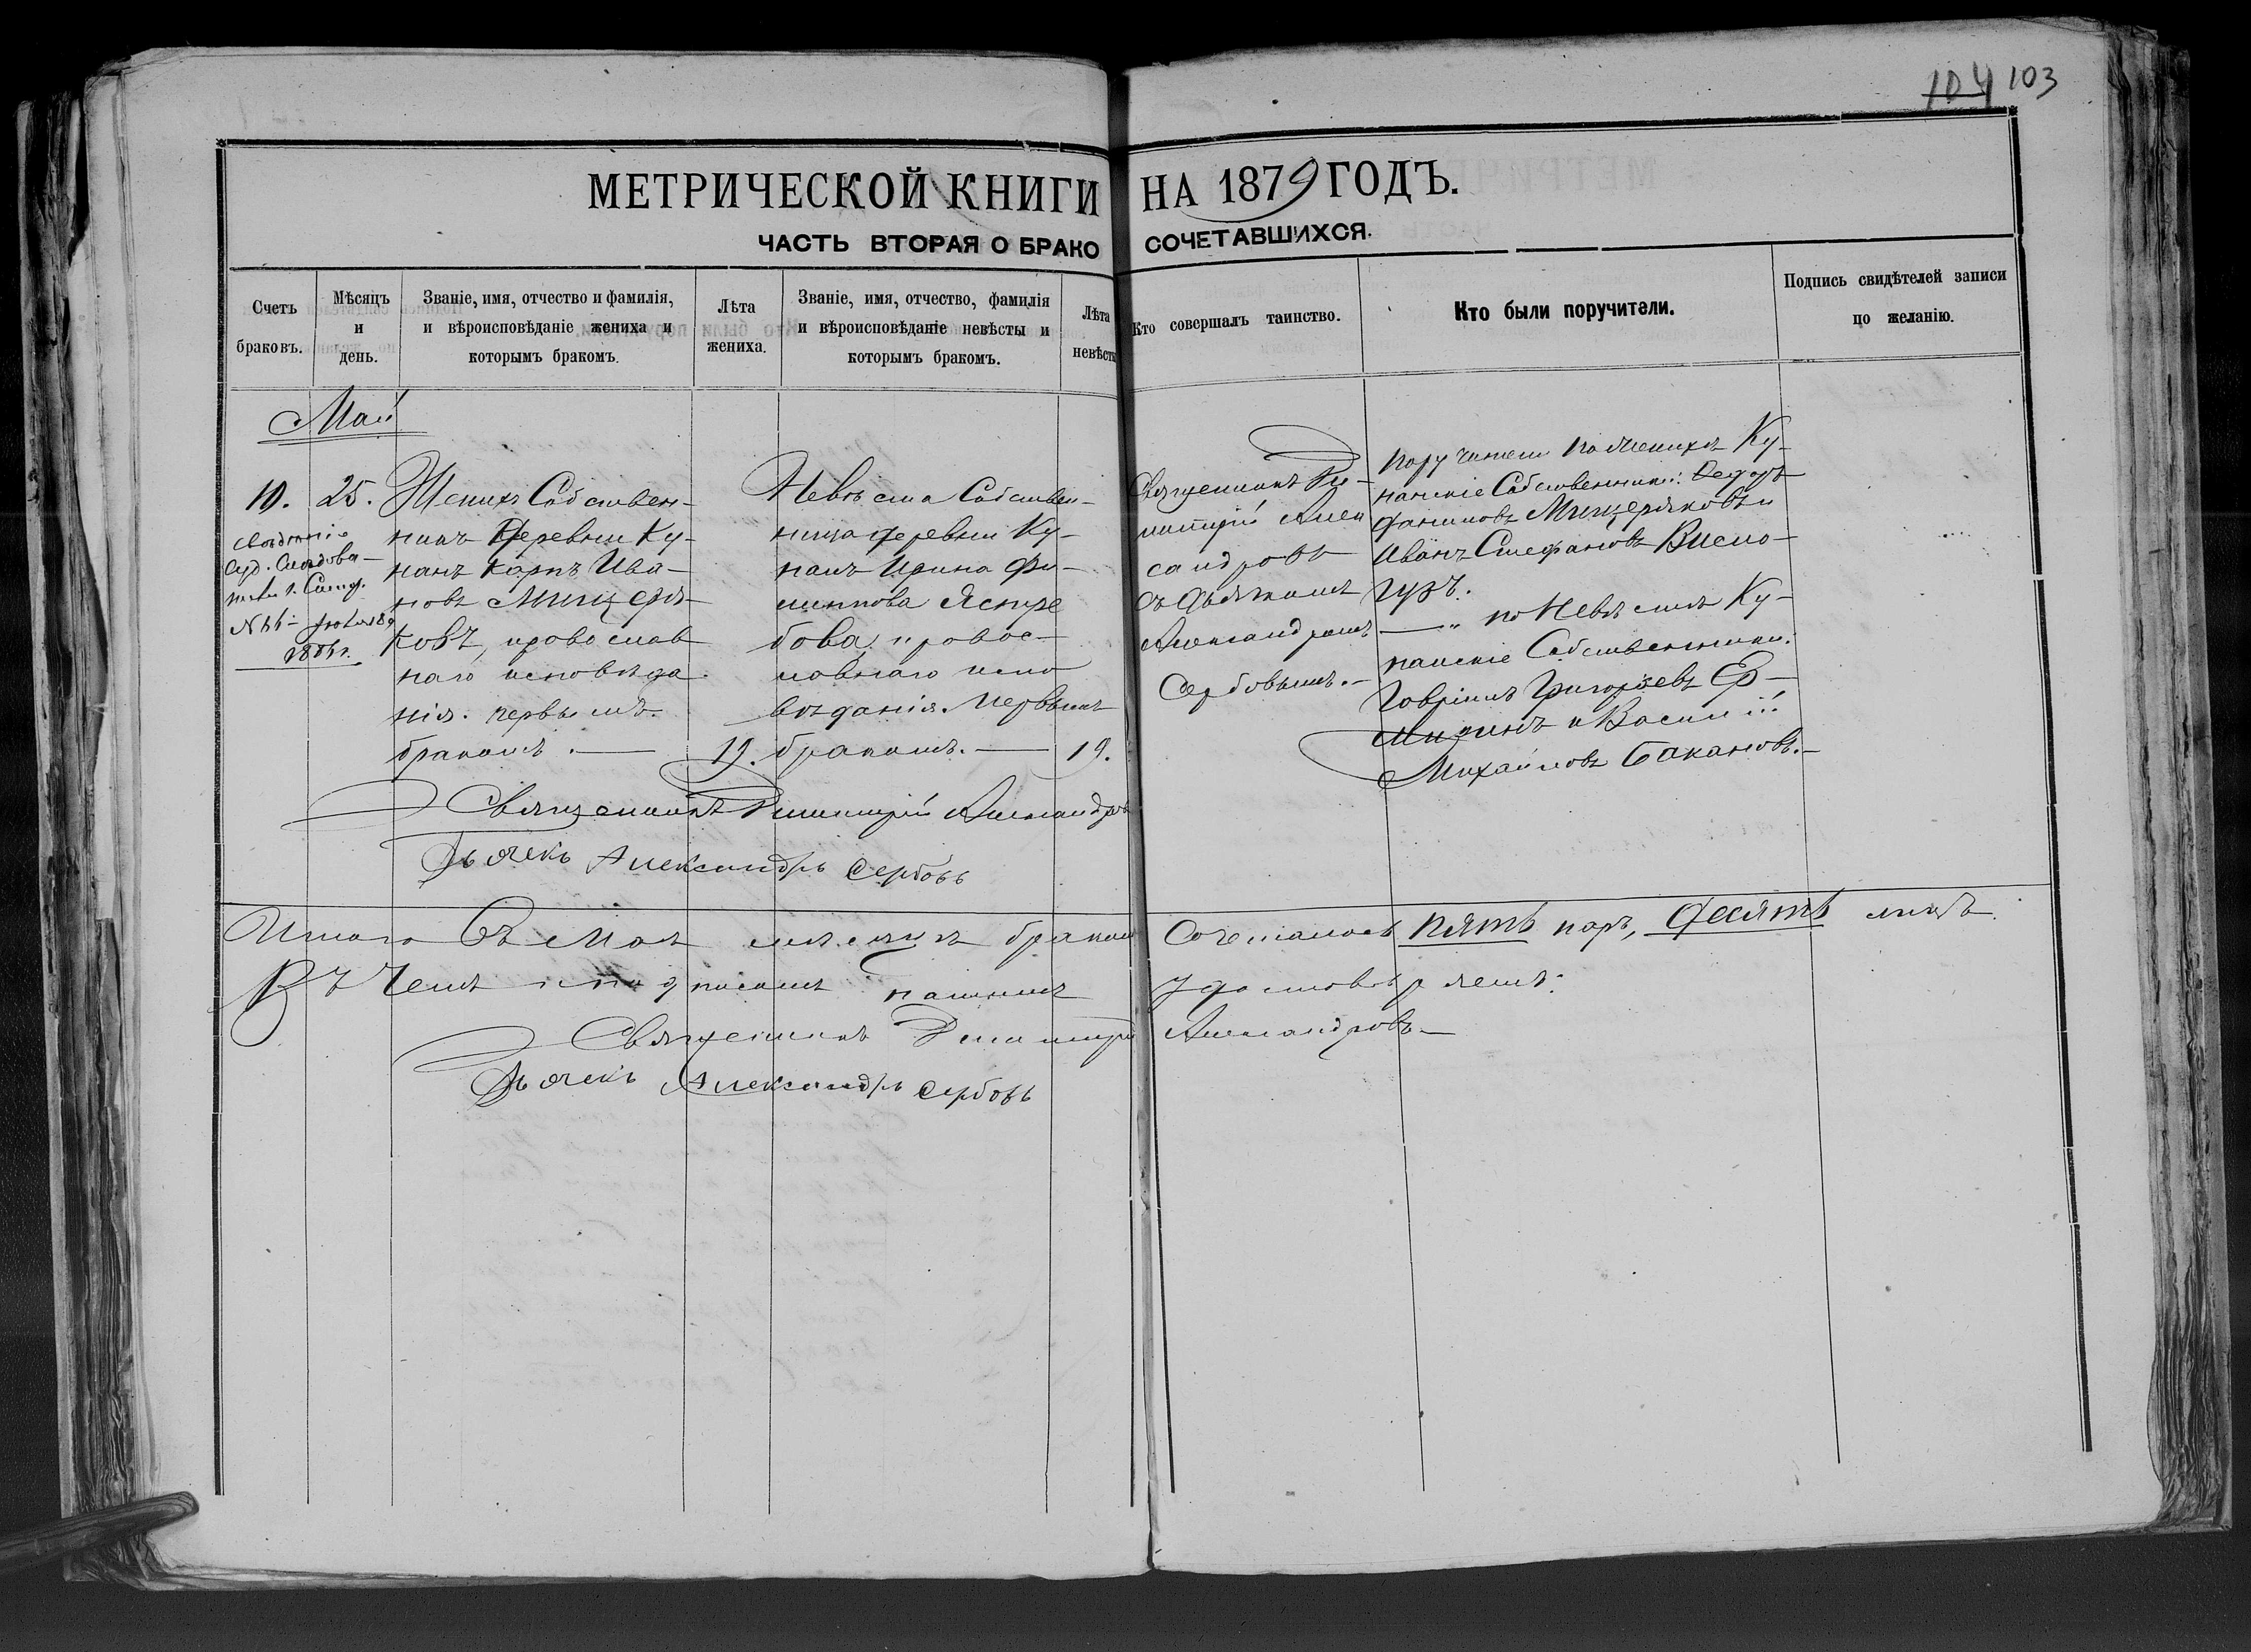 104 103
МЕТРИЧЕСКОЙ КНИГИ НА 1879 ГОДЪ.
ЧАСТЬ ВТОРАЯ О БРАКОСОЧЕТАВШИХСЯ.
Счетъ браковъ.
Мѣсяцъ и день.
Званіе, имя, отчество и фамилія,
и вѣроисповѣданіе жениха и
которымъ бракомъ.
Лѣта жениха.
Званіе, имя, отчество, фамилія
и вѣроисповѣданіе невѣсты и
которымъ бракомъ.
Лѣта невѣсты
Кто совершалъ таинство.
Кто были поручители.
Подпись свидѣтелей записи
по желанію.
Май
10. 25.
Суд. Слѣдова-
1886 г.
Женихъ Собствен-
никъ Деревни Ку-
нанъ Карпъ Ива-
новъ Мищеря-
ковъ, провослав
наго исповѣда-
нія. первымъ
бракомъ. — 19.
Невѣста Собствен-
ница деревни Ку-
нанъ Ирина Фи-
липпова Ястре
бова, провос-
лавнаго испо
вѣданія. Первымъ
бракомъ. — 19.
Священникъ Ди-
митрій Алек
сандровъ
съ Дьячкомъ
Александромъ
Сербовымъ. —
Поручители по Женихѣ Ку-
нанскіе Собственники: Ѳедоръ
Мищеряковъ и
Иванъ Стефановъ Висло-
гузъ.
— „ по Невѣстѣ Ку-
нанскіе Собственники:
Говріилъ Григорьевъ Ер-
милинъ и Василій
Михайловъ Бакановъ. —
Священникъ Димитрій Александровъ
Дьячекъ Александръ Сербовъ
Итого Въ Маѣ мѣсяцѣ бракомъ Сочеталось пять паръ, десять лицъ.
Въ Чемъ и подписомъ нашимъ удостовѣряемъ:
Священникъ Димитрій Александровъ —
Дьячекъ Александръ Сербовъ